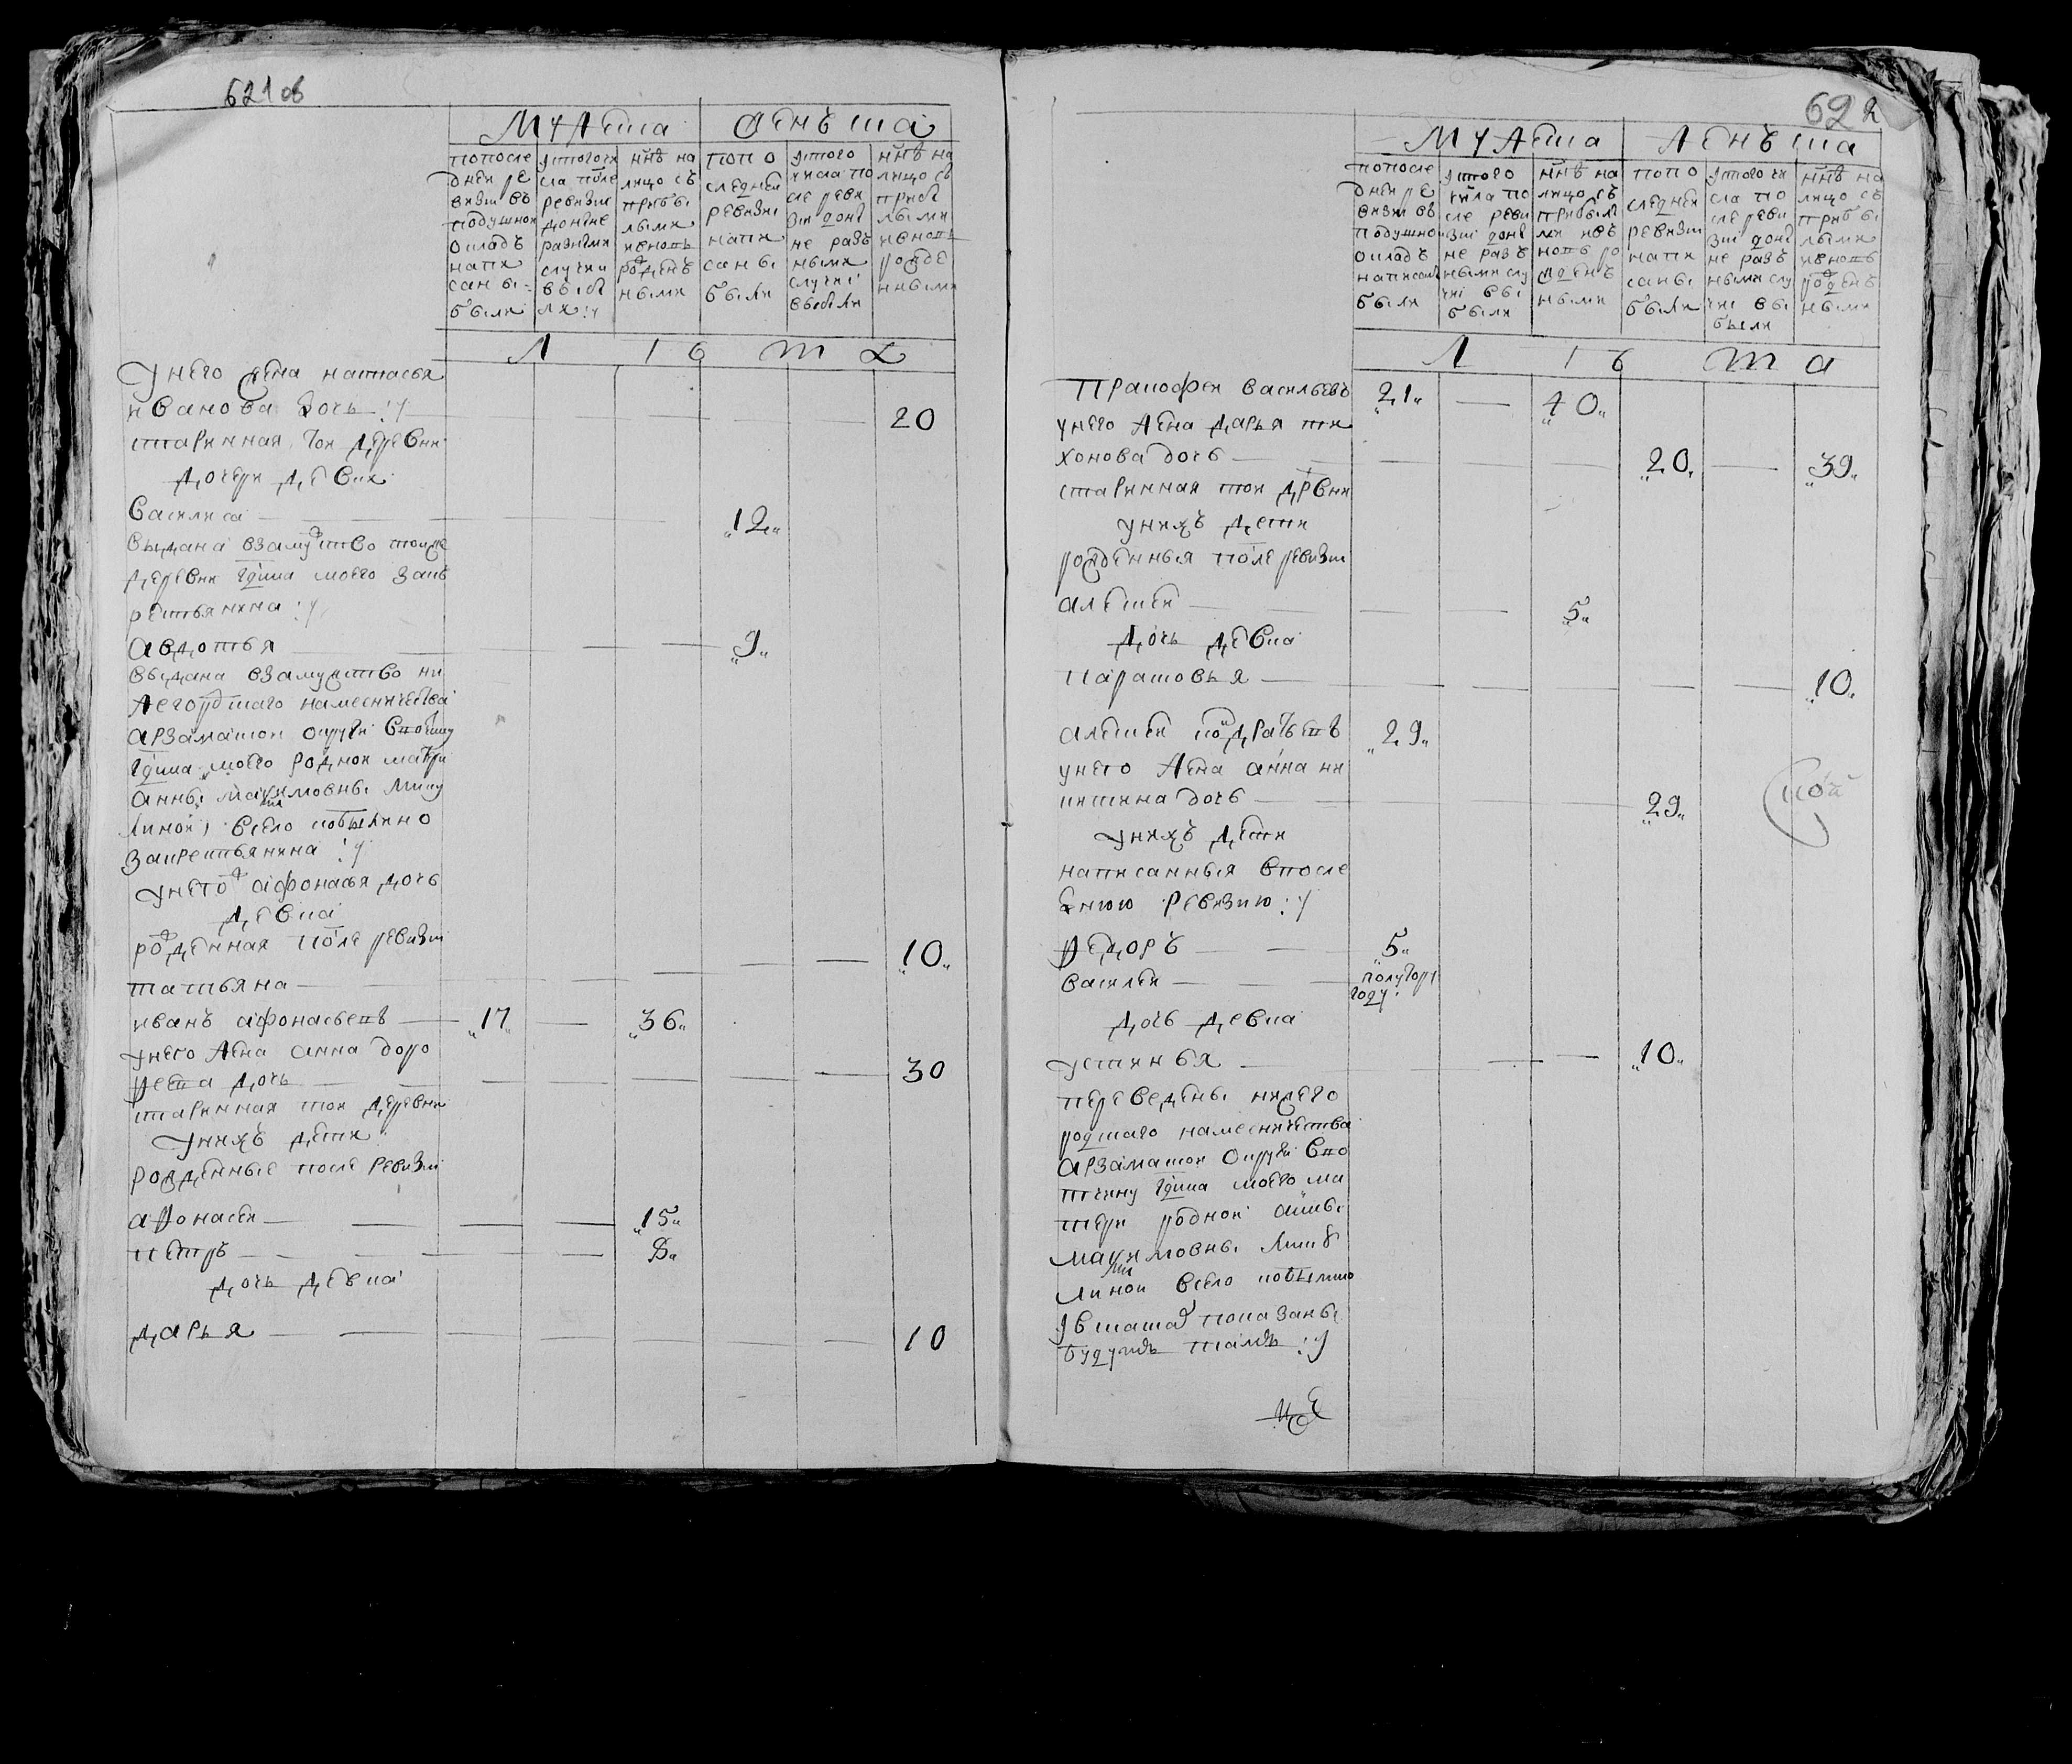 621 об
Мужеска
женъска
попосле
дней ре
визи въ
подушной
окладъ
напи
саны
были
ис того чи
сла после
ревизии
доныне
разными
случаи
выбы
ли :/
ннѣ на
лицо съ
прибы
лыми
ивновь
рожденъ
ными
по по
следней
ревизии
напи
саны
были
ис того
числа по
сле реви
зии доны
не разъ
ными
случаи
выбыли
ннѣ на
лицо съ
прибы
лыми
ивновь
рожде
нными
лѣта
у него жена настасья
иванова дочь :/ 20
старинная той деревни
дочери девки
василиса „12„
выдана взамужство тоиже
деревни гдина моего заκ
рестьянина :/
авдотья „9„
выдана взамужство ни
жегородскаго наместничества
арзамаской округи вотчину
гдина моего родной матери
анны максимовны
линой всело
закрестьянина :/
у него афонасья дочь
девка
рожденная после ревизии
татьяна „10„
иванъ афонасьевъ „17„ „36„
у него жена анна доро
феева дочь 30
старинная той деревни
у нихъ дети
рожденные после ревизии
афонасей „15„
петръ 8„
дочь девка
дарья 10
622
Мужеска
женъска
попосле
дней ре
визи въ
подушной
окладъ
написаны
были
ис того
числа по
сле реви
зии доны
не разъ
ными слу
чаи вы
были
ннѣ на
лицо съ
прибылы
ми ивъ
новь ро
жденъ
ными
по по
следней
ревизии
напи
саны
были
ис того чи
сла по
сле реви
зии доны
не разъ
ными слу
чаи вы
были
ннѣ на
лицо съ
прибы
лыми
ивновь
рожденъ
ными
лѣта
Пракофей васильевъ „21„ „40„
у него жена дарья ти
хонова дочь „20„ „39„
старинная той дрвни
у нихъ дети
рожденныя после ревизии
алексей „5„
дочь девка
парасковья „10„
алексей кондратьевъ „29„
у него жена анна ни
китина дочь „29„
у нихъ дети
написанныя впосле
днюю ревизию :/
федоръ „5„
василей полутору
году
дочь девка
устинья „10„
переведены нижего
родскаго наместничества
арзамаской округи вво
тчину гдина моего ма
тери родной анны
максимовны
линой всело
показаны
будутъ тамъ :/